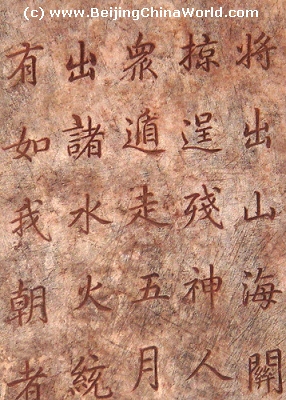 (c) www.BeijingChinaWorld.com
将出山海關
掠逞殘神人
眾遁走五月
出諸水火統
有如我朝者